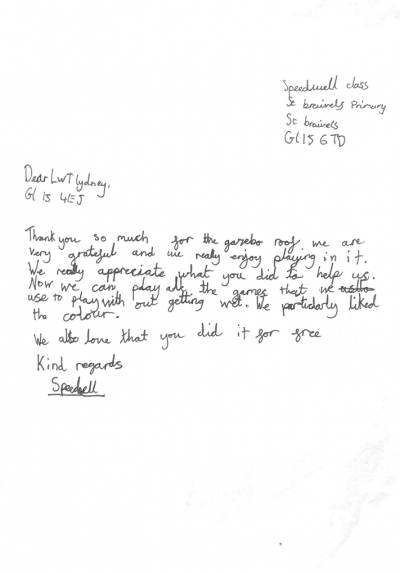 Speedwell class
St braivels Primary
St braivels
Gl15 6TD
Dear LWT lydney,
Gl 15 4EJ
Thank you so much for the gazebo roof we are
very grateful and we really enjoy playing in it.
We really appreciate what you did to help us.
Now we can play all the games that we
use to play with out getting wet. We particlarly liked
the colour.
We also love that you did it for free
Kind regards
Speedwell